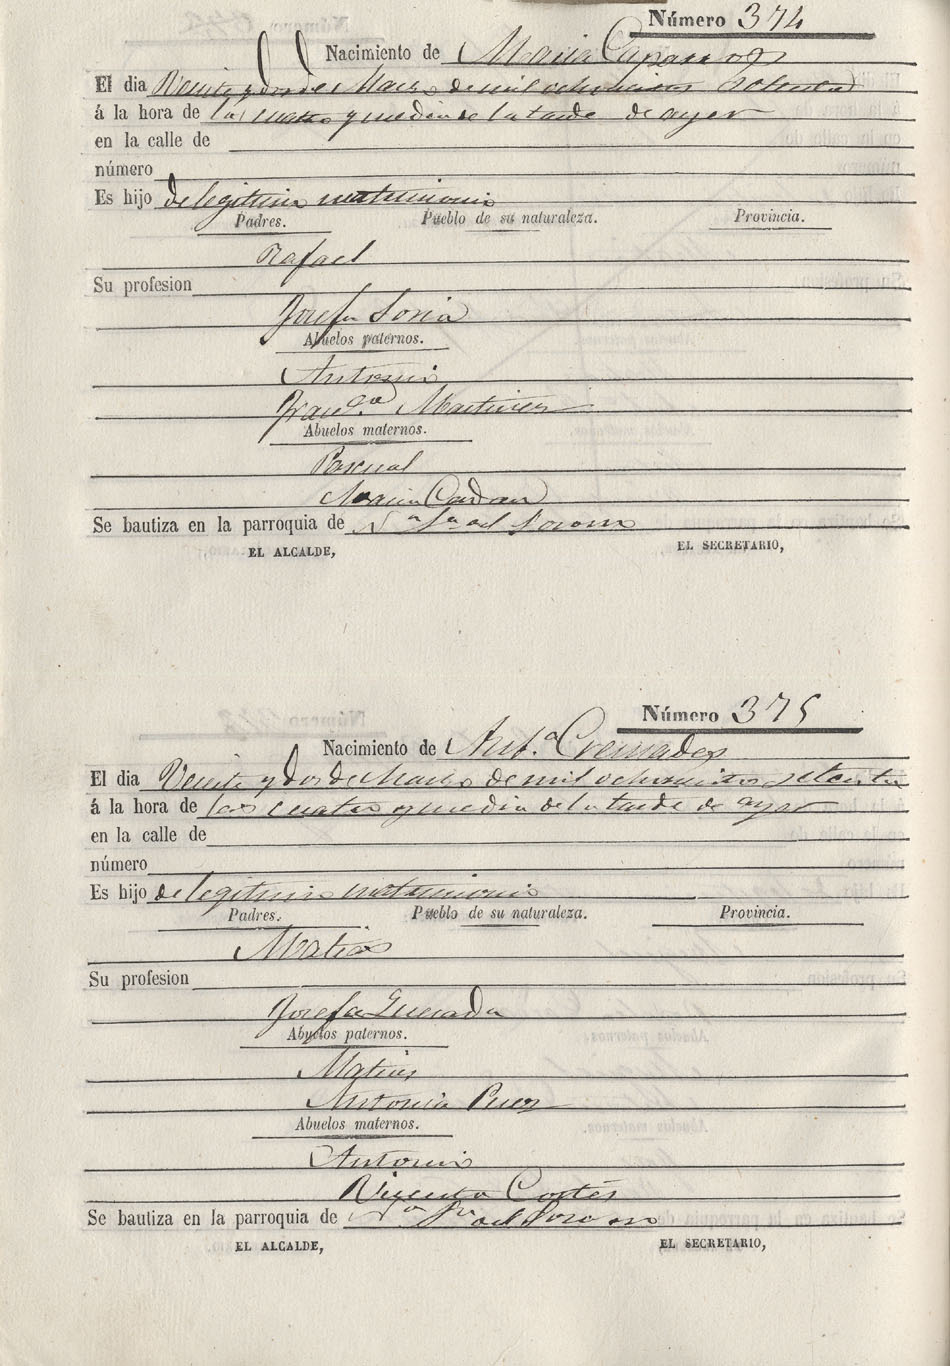 Número 374
Nacimiento de Maria Caparros
El dia Veinte y dos de Marzo de mil ochocientos setenta
á la hora de las cuatro y media de la tarde de ayer
en la calle de
número
Es hijo de legitimo matrimonio
Padres. Pueblo de su naturaleza. Provincia.
Rafael
Su profesion
Josefa Soria
Abuelos paternos.
Antonio
Franc.ca Martinez
Abuelos maternos.
Pascual
Maria
Se bautiza en la parroquia de N.a S.ra del Socorro
EL ALCALDE, EL SECRETARIO,
Número 375
Nacimiento de Ant.a Cremades
El dia Veinte y dos de Marzo de mil ochocientos setenta
á la hora de las cuatro y media de la tarde de ayer
en la calle de
número
Es hijo de legitimo matrimonio
Padres. Pueblo de su naturaleza. Provincia.
Matias
Su profesion
Josefa Quesada
Abuelos paternos.
Matias
Antonia Perez
Abuelos maternos.
Antonio
Vicenta Cortés
Se bautiza en la parroquia de N.a S.ra del Socorro
EL ALCALDE, EL SECRETARIO,